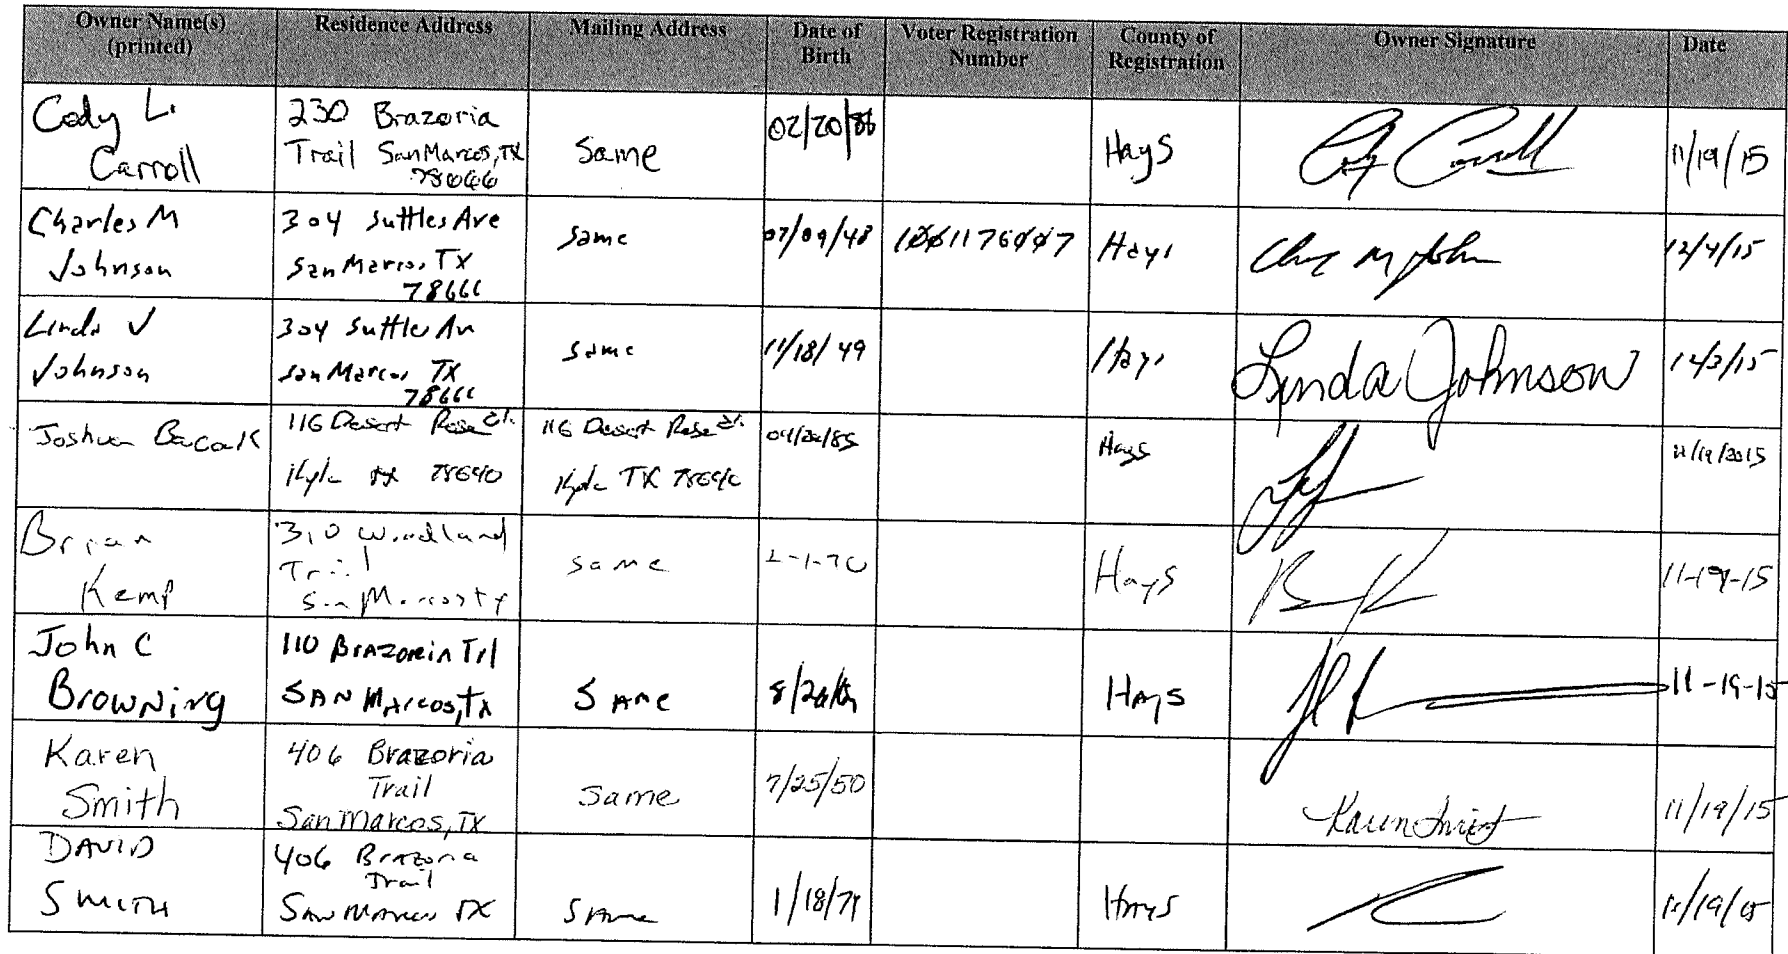 Owner Name(s) (printed) Residence Address Mailing Address Date of Birth Voter Registration Number County of Registration Owner Signature Date
Cody L. Carroll 230 Brazoria Trail San Marcos, TX 78666 Same 02/20/86 Hays 11/19/15
Charles M Johnson 304 Suttles Ave San Marcos TX 78666 Same 07/09/48 1001176007 Hays 12/4/15
Linda J Johnson 304 Suttles Av San Marcos TX 78666 Same 11/18/49 Hays Linda Johnson 12/3/15
Joshua 116 Desert Rose Kyle TX 78640 116 Desert Rose Kyle TX 78640 Hays 11/19/2015
Brian Kemp 310 Woodland Trail San Marcos TX same 2-1-70 Hays 11-19-15
John C Browning 110 Brazoria Trl San Marcos, Tx Same Hays 11-19-15
Karen Smith 406 Brazoria Trail San Marcos, TX Same 7/25/50 Karen Smith 11/19/15
DAVID SMITH 406 Brazoria Trail San Marcos TX SAme Hays 11/19/15